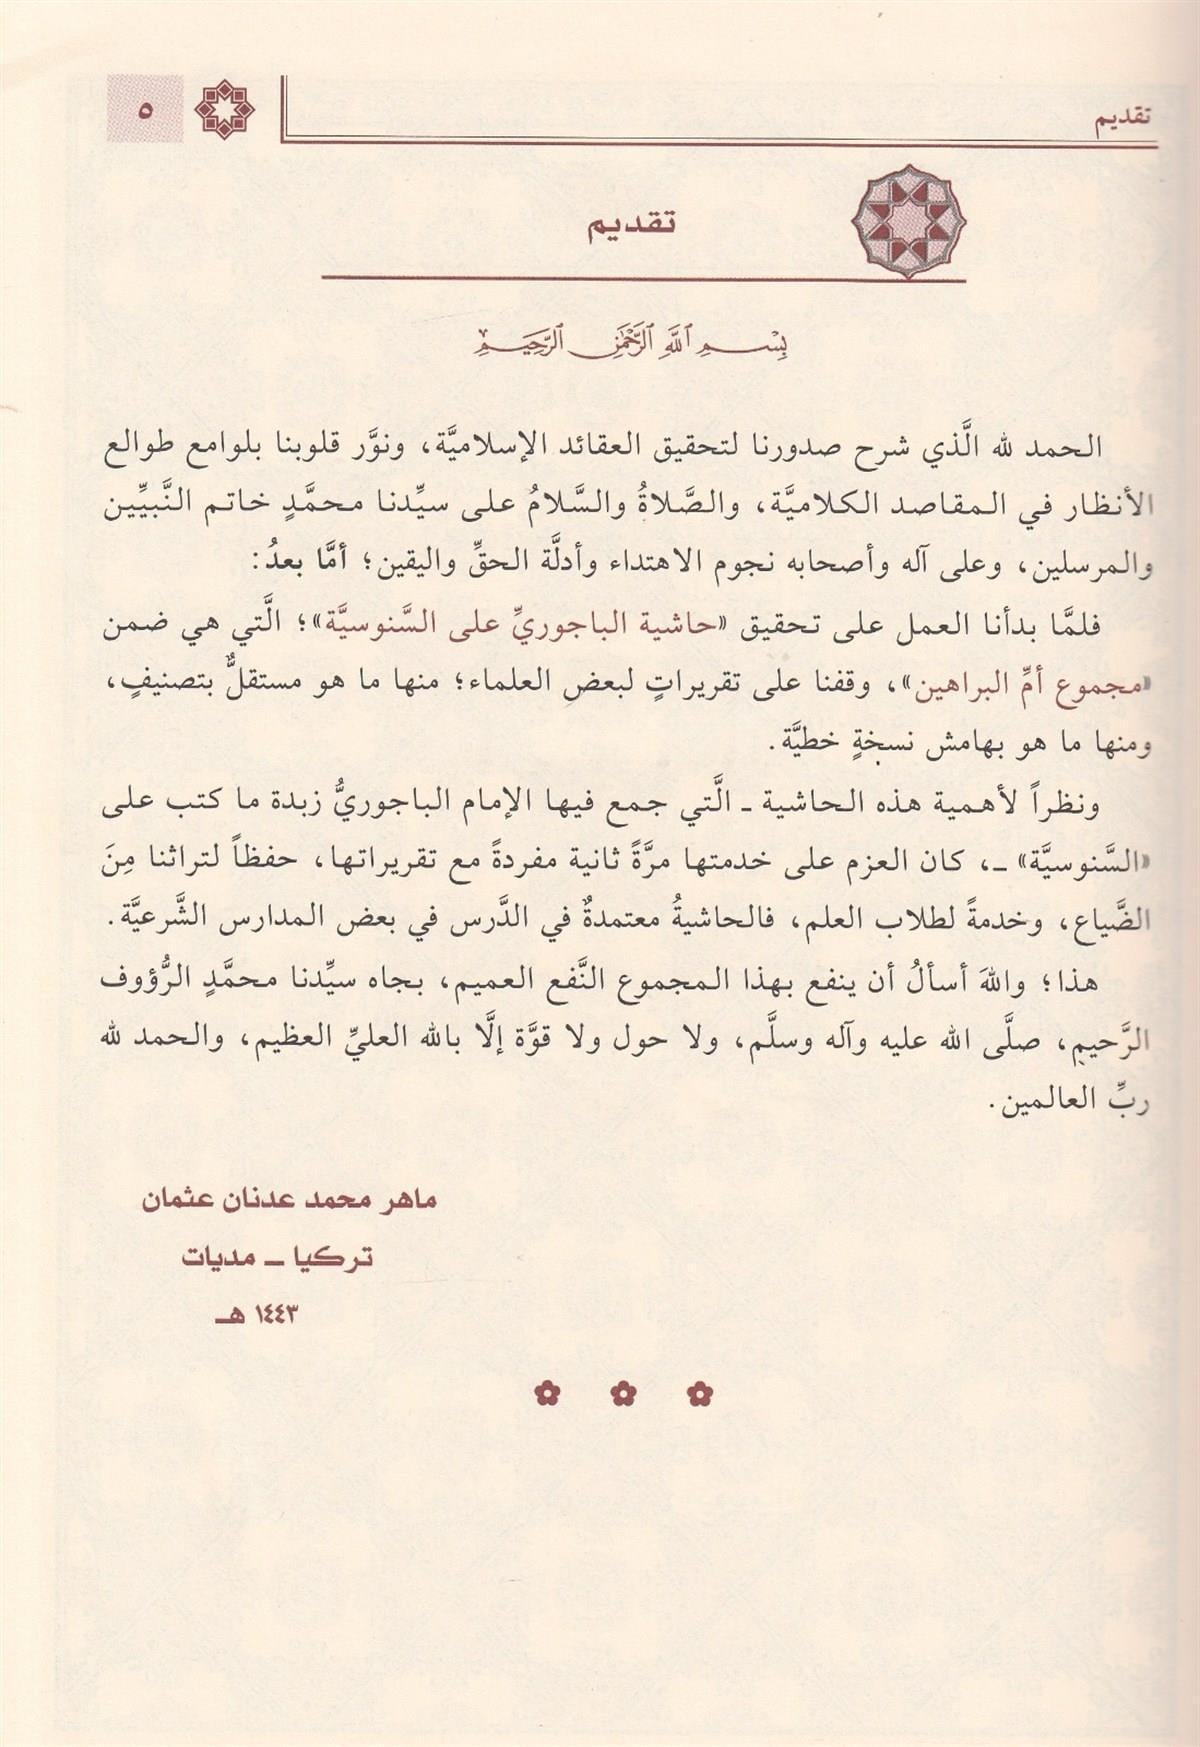 تقديم
٥
تقديم
بِسْمِ اللَّهِ الرَّحْمَٰنِ الرَّحِيمِ
الحمد لله الَّذي شرح صدورنا لتحقيق العقائد الإسلاميَّة، ونوَّر قلوبنا بلوامع طوالع
الأنظار في المقاصد الكلاميَّة، والصَّلاةُ والسَّلامُ على سيِّدنا محمَّدٍ خاتم النَّبيِّين
والمرسلين، وعلى آله وأصحابه نجوم الاهتداء وأدلَّة الحقِّ واليقين؛ أمَّا بعدُ:
فلمَّا بدأنا العمل على تحقيق «حاشية الباجوريِّ على السَّنوسيَّة»؛ الَّتي هي ضمن
«مجموع أمِّ البراهين»، وقفنا على تقريراتٍ لبعض العلماء؛ منها ما هو مستقلٌّ بتصنيفٍ،
ومنها ما هو بهامش نسخةٍ خطيَّة.
ونظراً لأهمية هذه الحاشية ـ الَّتي جمع فيها الإمام الباجوريُّ زبدة ما كتب على
«السَّنوسيَّة» ـ، كان العزم على خدمتها مرَّةً ثانية مفردةً مع تقريراتها، حفظاً لتراثنا مِنَ
الضَّياع، وخدمةً لطلاب العلم، فالحاشيةُ معتمدةٌ في الدَّرس في بعض المدارس الشَّرعيَّة.
هذا؛ واللهَ أسألُ أن ينفع بهذا المجموع النَّفع العميم، بجاه سيِّدنا محمَّدٍ الرُّؤوف
الرَّحيم، صلَّى الله عليه وآله وسلَّم، ولا حول ولا قوَّة إلَّا بالله العليِّ العظيم، والحمد لله
ربِّ العالمين.
ماهر محمد عدنان عثمان
تركيا ـ مديات
١٤٤٣ هـ